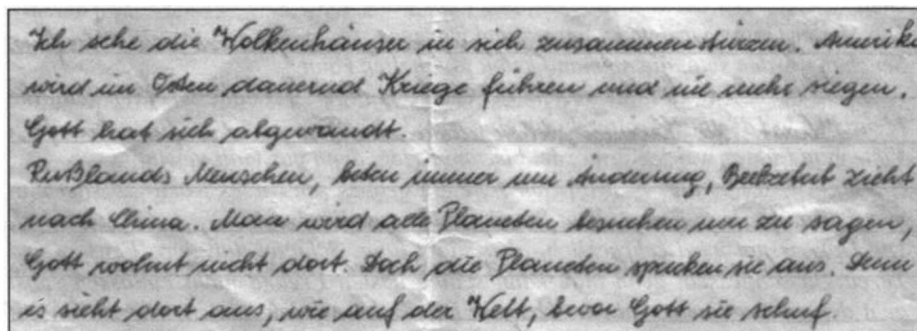 Ich sehe die Wolkenhäuser in sich zusammenstürzen. Amerika
wird im Osten dauernd Kriege führen und nie mehr siegen.
Gott hat sich abgewandt.
Rußlands Menschen, beten immer um Änderung, Beelzebut zieht
nach China. Man wird alle Planeten besuchen um zu sagen,
Gott wohnt nicht dort. Doch die Planeten spucken sie aus. Denn
es sieht dort aus, wie auf der Welt, bevor Gott sie schuf.